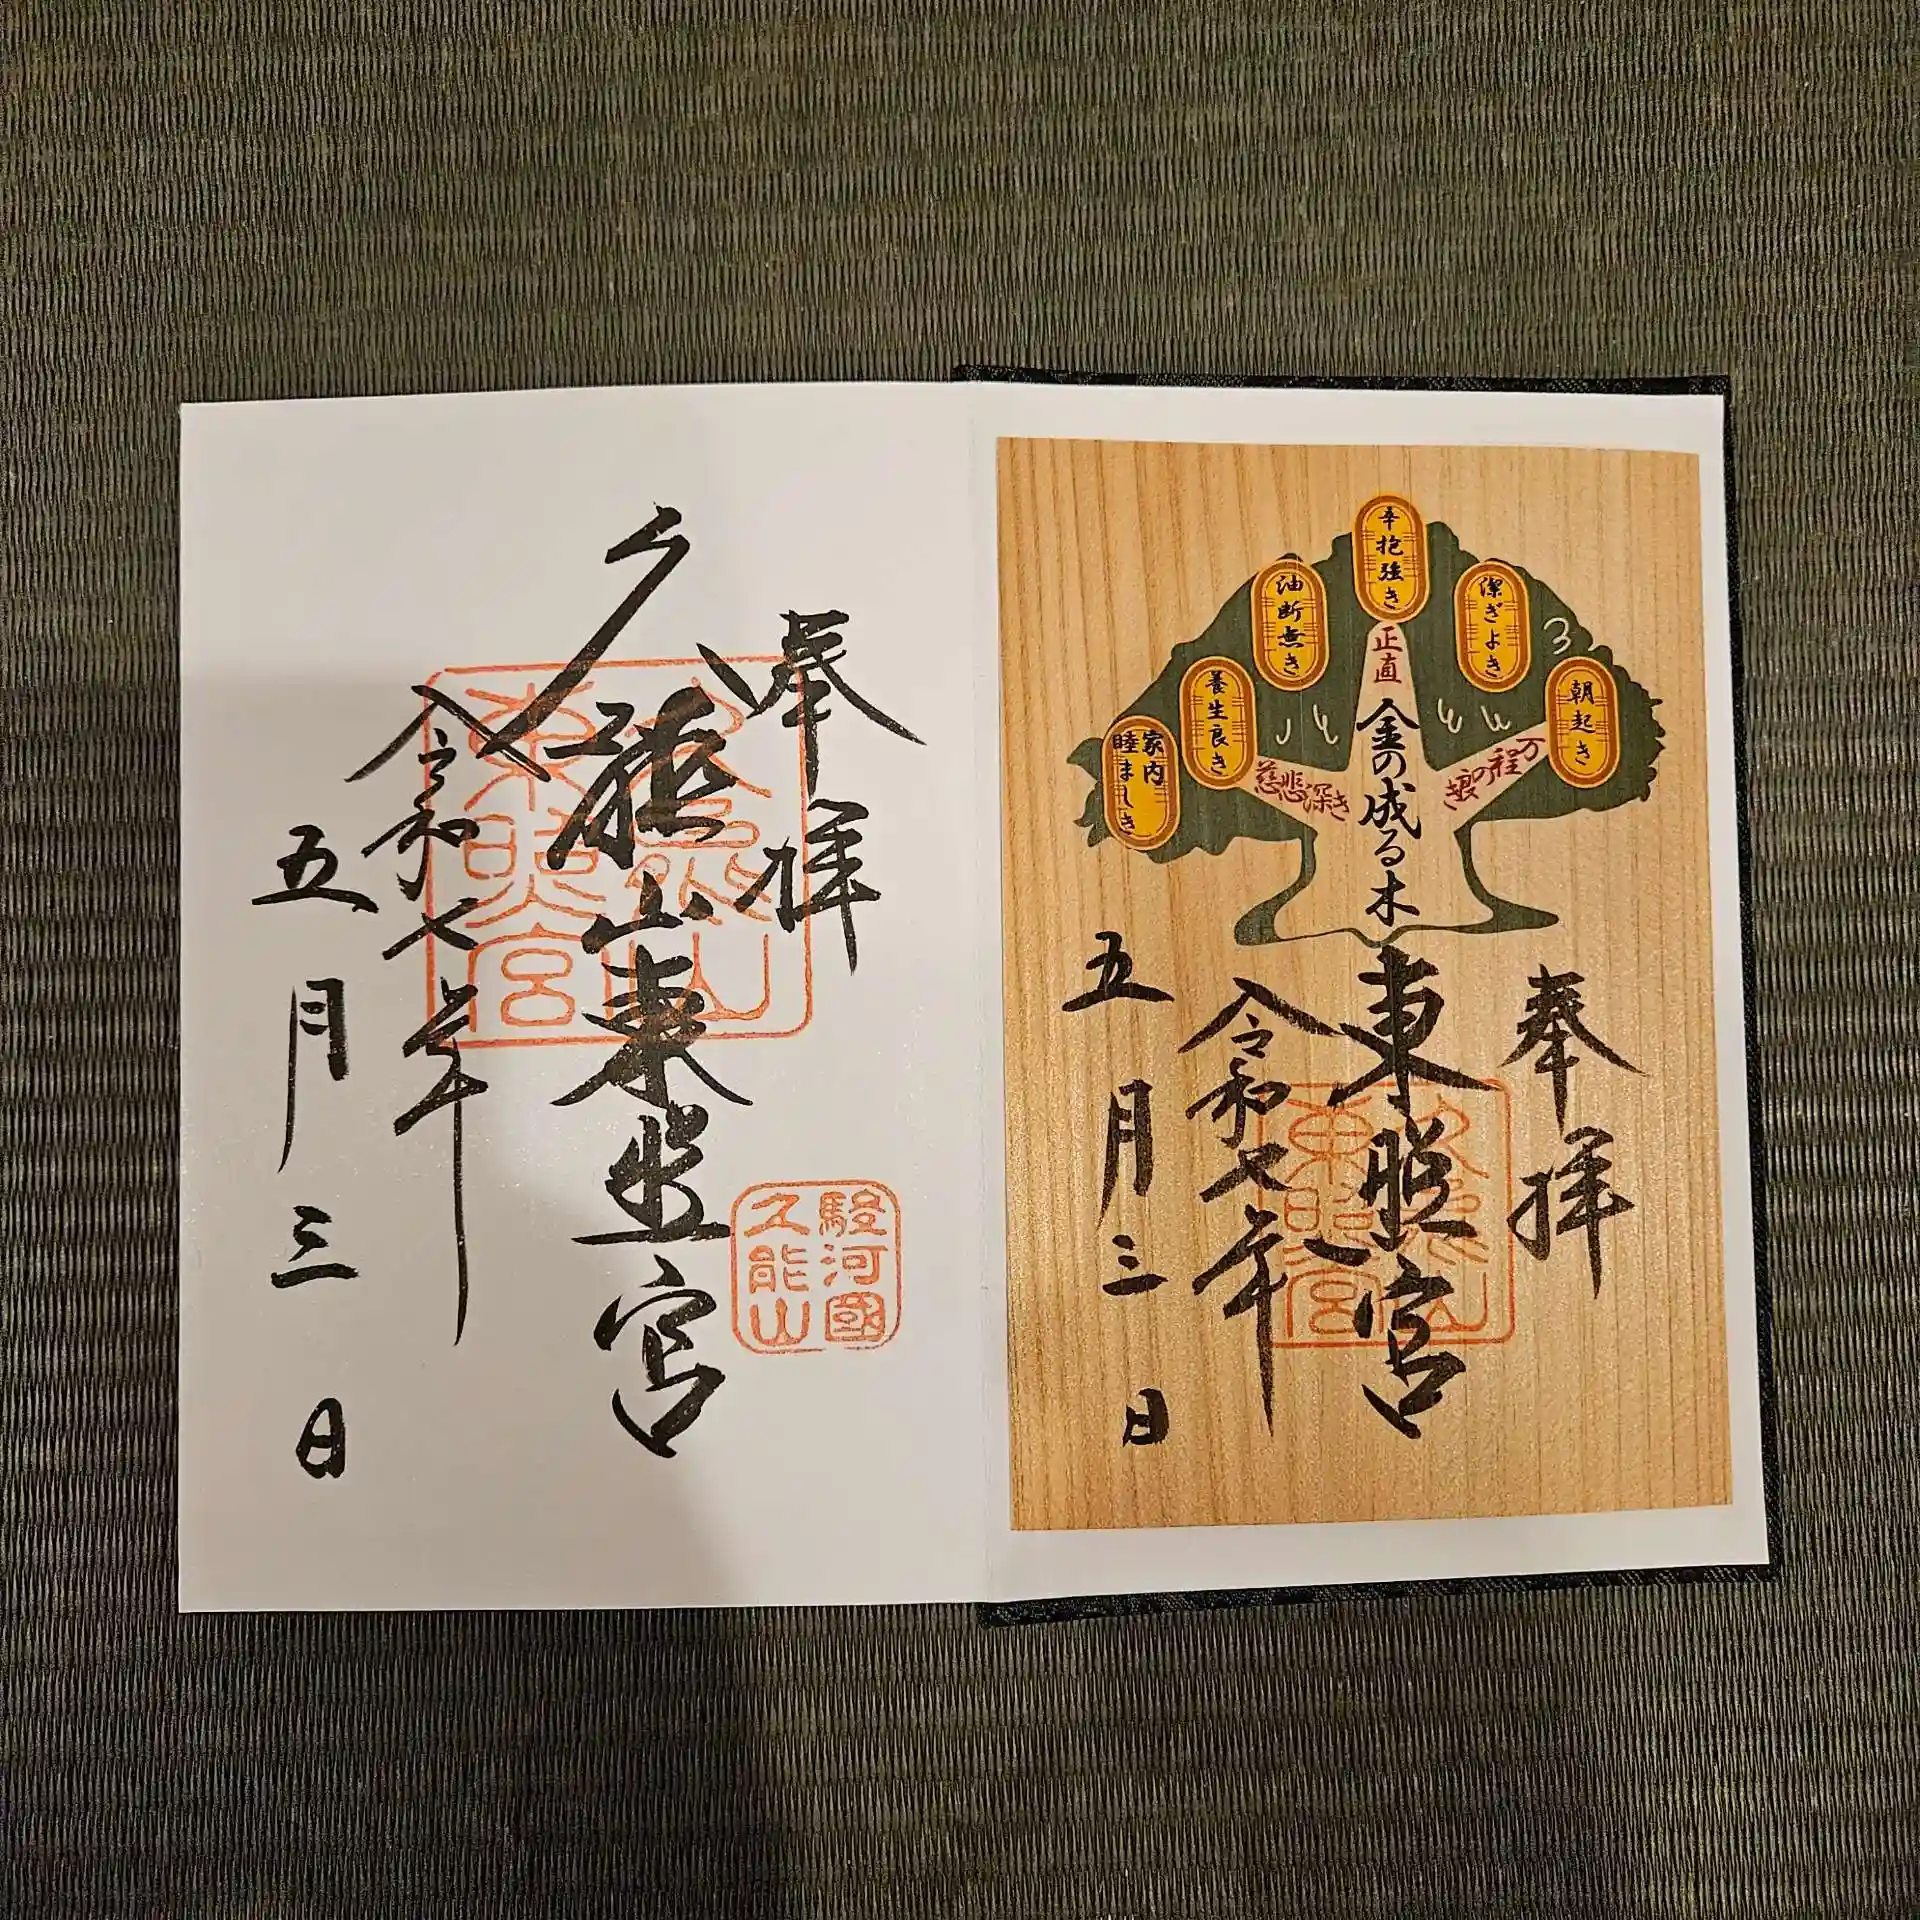 奉拝
久能山東照宮
令和七年
五月三日
久能山
東照宮
駿河國
久能山
朝起き
潔ぎよき
辛抱強き
油断無き
養生良き
家内
睦ましき
万程の良き
正直
慈悲深き
金の成る木
奉拝
東照宮
令和七年
五月三日
久能山
東照宮